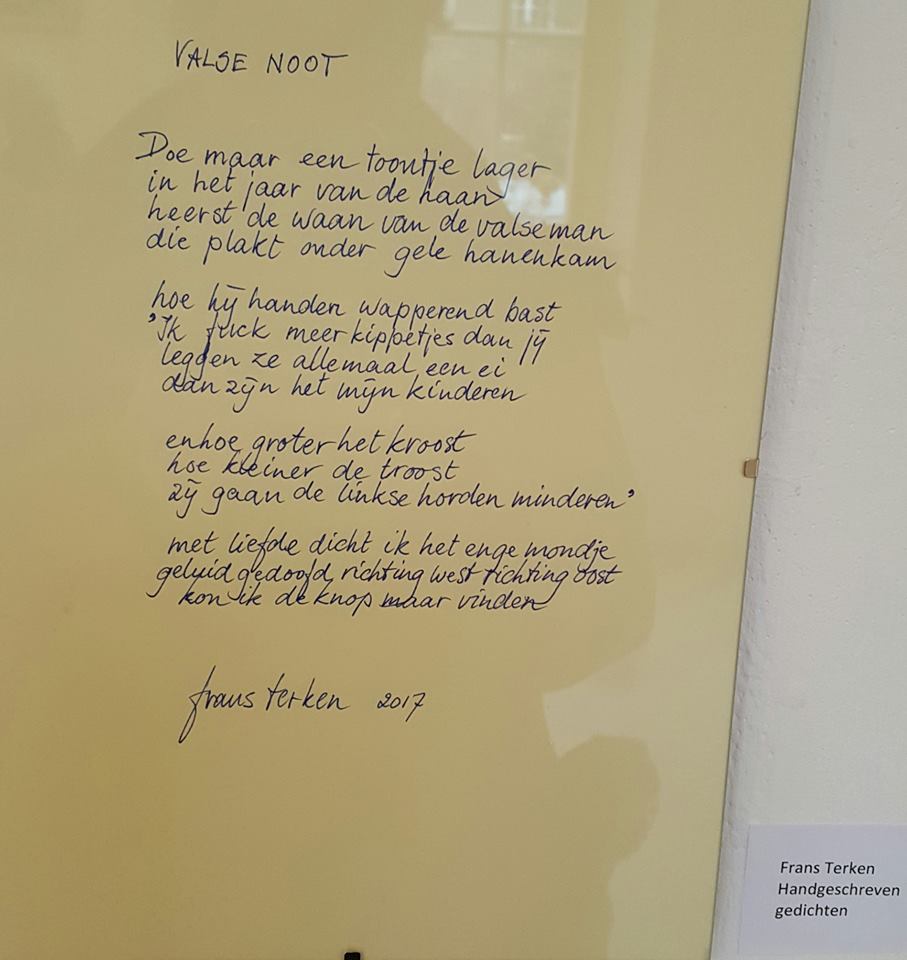 VALSE NOOT
Doe maar een toontje lager
in het jaar van de haan
heerst de waan van de valse man
die plakt onder gele hanenkam
hoe hij handen wapperend bast
'Ik fuck meer kippetjes dan jij
leggen ze allemaal een ei
dan zijn het mijn kinderen
en hoe groter het kroost
hoe kleiner de troost
zij gaan de linkse horden minderen'
met liefde dicht ik het enge mondje
geluid gedoofd, richting west richting oost
kon ik de knop maar vinden
frans terken 2017
Frans Terken
Handgeschreven
gedichten